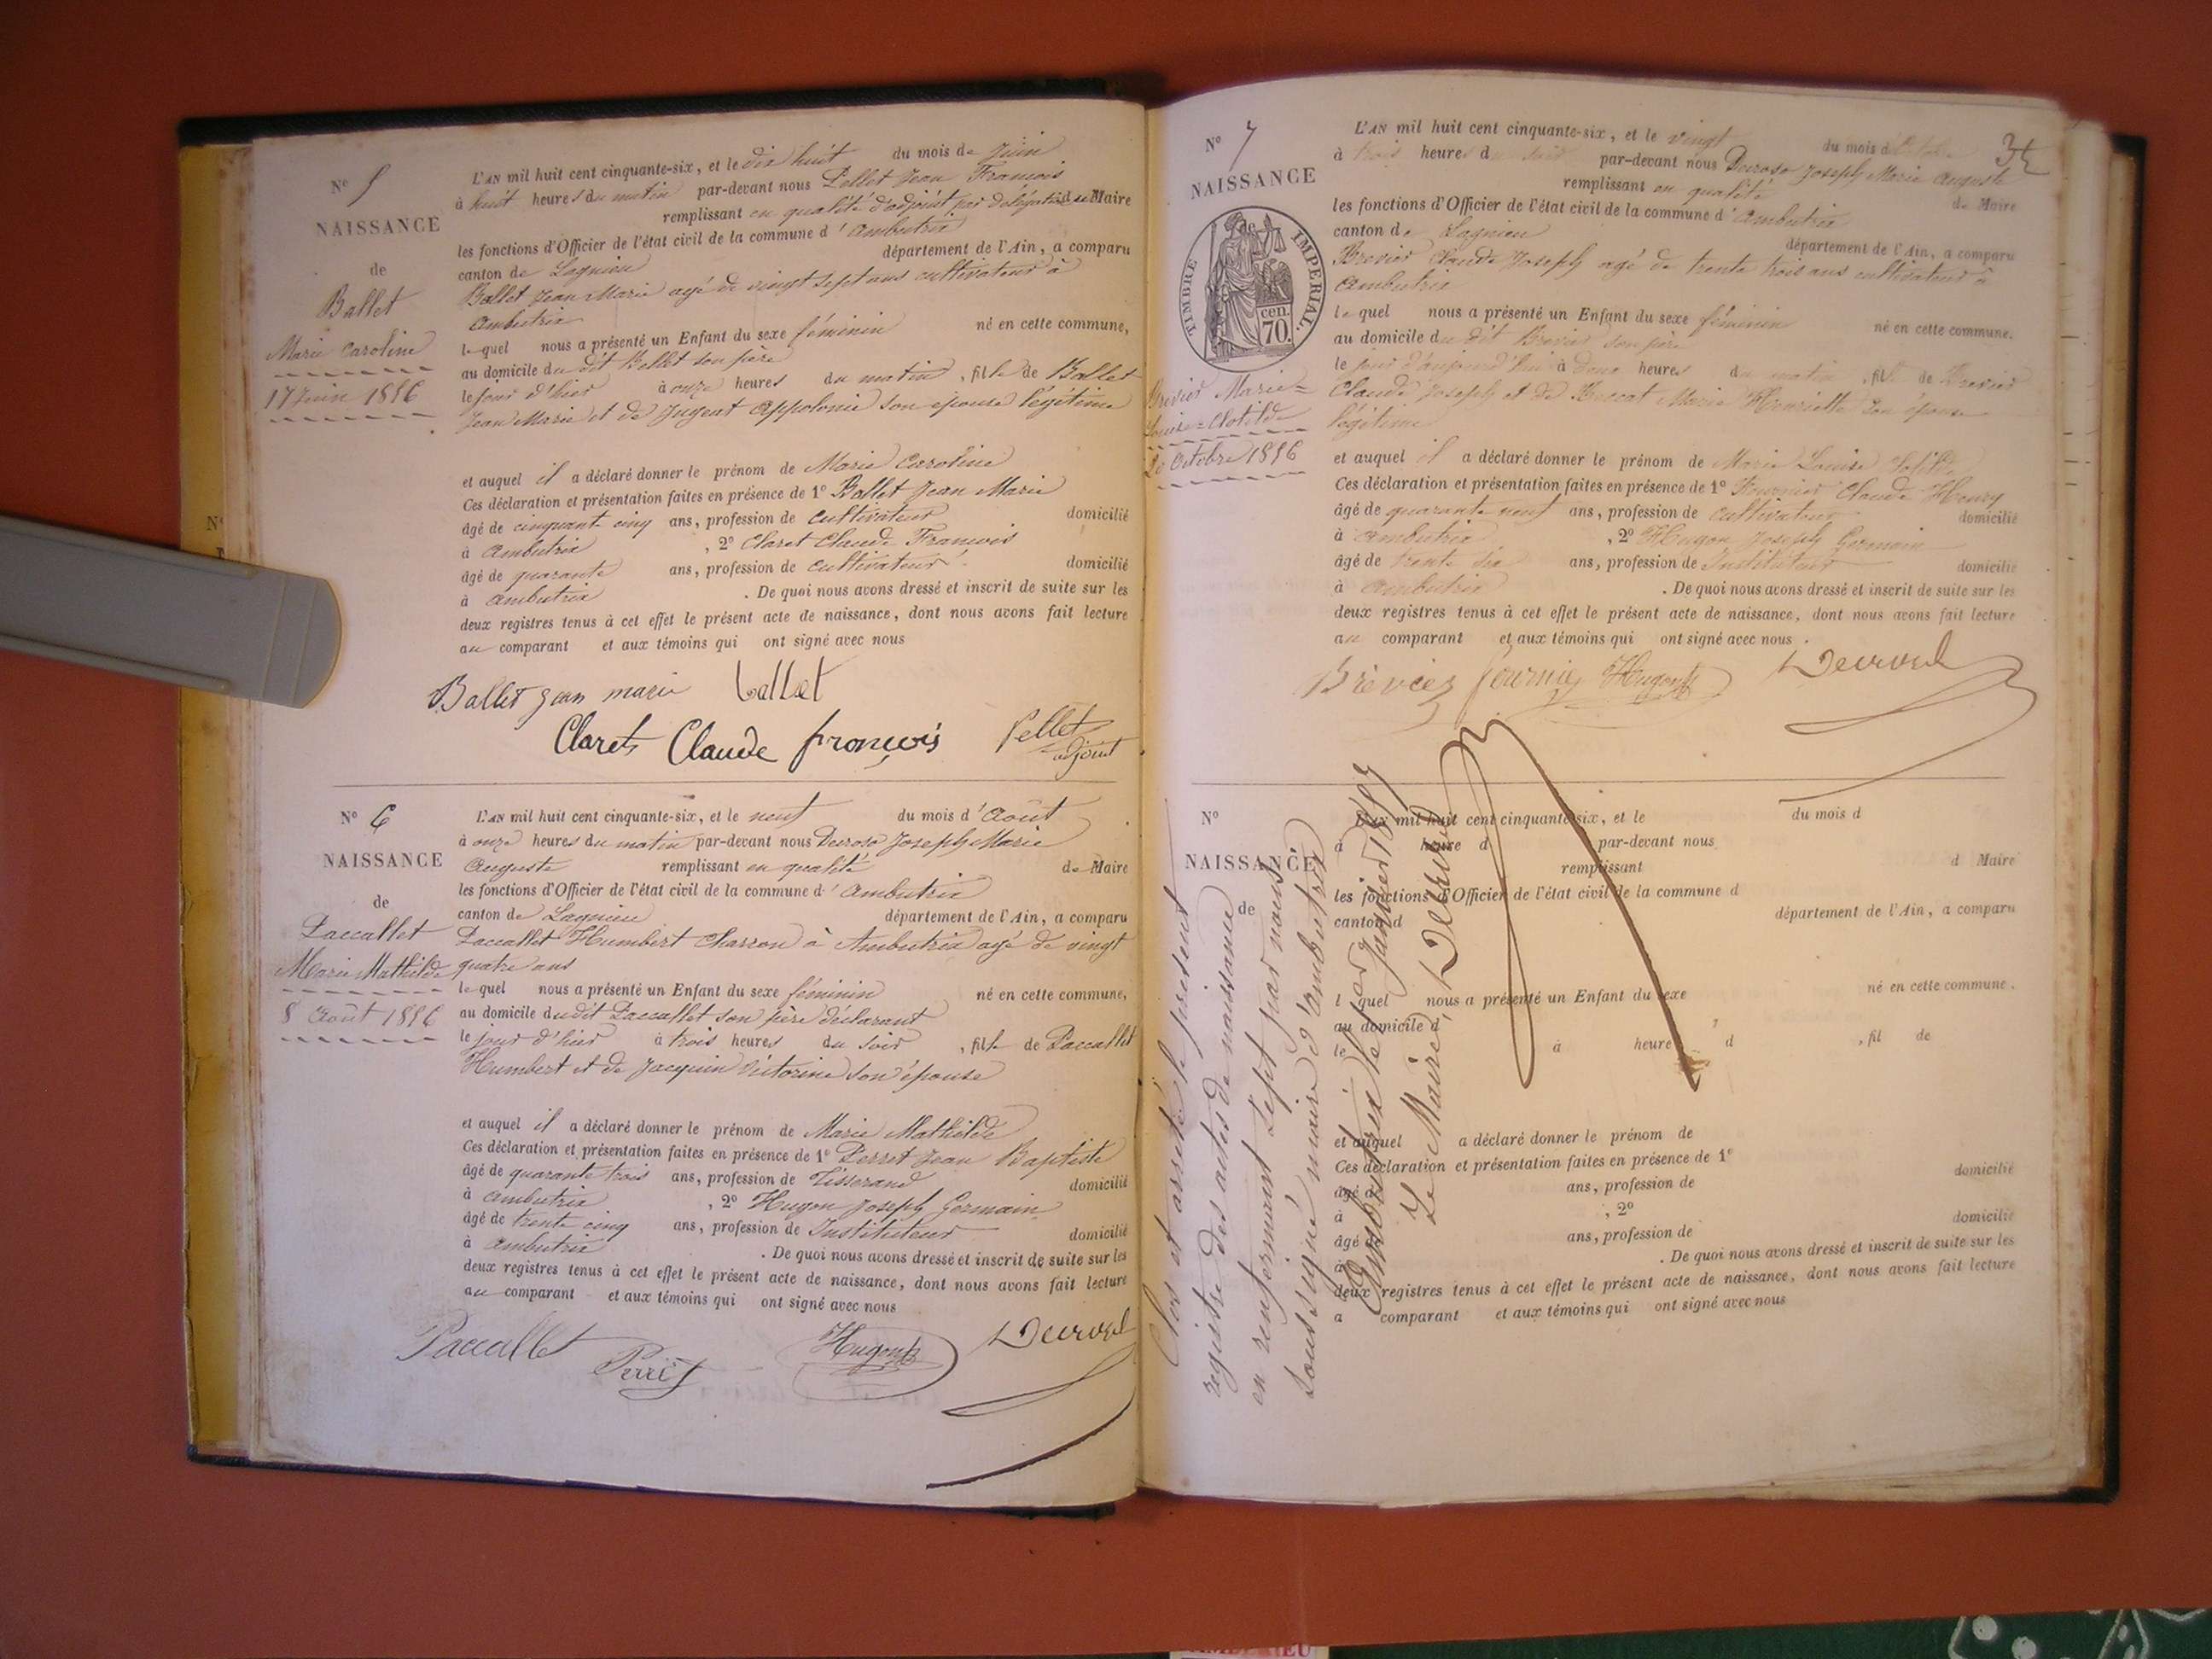 N° 5
NAISSANCE
de
Ballet
Marie Caroline
17 Juin 1856
L'AN mil huit cent cinquante-six, et le dix huit du mois de Juin
à huit heures du matin par-devant nous Pellet Jean François
remplissant en qualité d'adjoint par délégation de Maire
les fonctions d'Officier de l'état civil de la commune d'Ambutrix
canton de Lagnieu département de l'Ain, a comparu
Ballet Jean Marie agé de vingt sept ans cultivateur à
Ambutrix
lequel nous a présenté un Enfant du sexe féminin né en cette commune,
au domicile du dit Ballet son père
le jour d'hier à onze heures du matin, fille de Ballet
Jean Marie et de Jugeat Appolonie son épouse légitime
et auquel il a déclaré donner le prénom de Marie Caroline
Ces déclaration et présentation faites en présence de 1° Ballet Jean Marie
âgé de cinquant cinq ans, profession de cultivateur domicilié
à Ambutrix , 2° Claret Claude François
âgé de quarante ans, profession de cultivateur domicilié
à Ambutrix . De quoi nous avons dressé et inscrit de suite sur les
deux registres tenus à cet effet le présent acte de naissance, dont nous avons fait lecture
au comparant et aux témoins qui ont signé avec nous
Ballet jean marie ballet
Claret Claude françois Pellet
adjoint
N° 6
NAISSANCE
de
Paccallet
Marie Mathilde
8 Août 1856
L'AN mil huit cent cinquante-six, et le neuf du mois d'Août
à onze heures du matin par-devant nous Decroso Joseph Marie
Auguste remplissant en qualité de Maire
les fonctions d'Officier de l'état civil de la commune d'Ambutrix
canton de Lagnieu département de l'Ain, a comparu
Paccallet Humbert Charron à Ambutrix agé de vingt
quatre ans
lequel nous a présenté un Enfant du sexe féminin né en cette commune,
au domicile dudit Paccallet son père déclarant
le jour d'hier à trois heures du soir, fille de Paccallet
Humbert et de Jacquin Victorine son épouse
et auquel il a déclaré donner le prénom de Marie Mathilde
Ces déclaration et présentation faites en présence de 1° Perret Jean Baptiste
âgé de quarante trois ans, profession de Tisserand domicilié
à Ambutrix , 2° Hugon Joseph Germain
âgé de trente cinq ans, profession de Instituteur domicilié
à Ambutrix . De quoi nous avons dressé et inscrit de suite sur les
deux registres tenus à cet effet le présent acte de naissance, dont nous avons fait lecture
au comparant et aux témoins qui ont signé avec nous
Paccallet Perret Hugon
N° 7
35
NAISSANCE
TIMBRE IMPERIAL.
cen.
70.
Brevier Marie=
Louise=Clotilde
20 Octobre 1856
L'AN mil huit cent cinquante-six, et le vingt du mois d'Octobre
à trois heures du soir par-devant nous Decroso Joseph Marie Auguste
remplissant en qualité de Maire
les fonctions d'Officier de l'état civil de la commune d'Ambutrix
canton de Lagnieu département de l'Ain, a comparu
Brevier Claude Joseph agé de trente trois ans cultivateur à
Ambutrix
lequel nous a présenté un Enfant du sexe féminin né en cette commune.
au domicile du dit Brevier son père
le jour d'aujourd'hui à deux heures du matin, fille de Brevier
Claude Joseph et de Marie Henriette son épouse
légitime
et auquel il a déclaré donner le prénom de Marie Louise Clotilde
Ces déclaration et présentation faites en présence de 1° Fournier Claude Henry
âgé de quarante neuf ans, profession de cultivateur domicilié
à Ambutrix , 2° Hugon Joseph Germain
âgé de trente six ans, profession de Instituteur domicilié
à Ambutrix . De quoi nous avons dressé et inscrit de suite sur les
deux registres tenus à cet effet le présent acte de naissance, dont nous avons fait lecture
au comparant et aux témoins qui ont signé avec nous.
Brevier fournier Hugon
N°
NAISSANCE
de
L'AN mil huit cent cinquante-six, et le du mois d
à heure d par-devant nous
remplissant d Maire
les fonctions d'Officier de l'état civil de la commune d
canton d département de l'Ain, a comparu
l quel nous a présenté un Enfant du sexe né en cette commune.
au domicile d
le à heure d , fil de
et auquel a déclaré donner le prénom de
Ces déclaration et présentation faites en présence de 1° domicilié
âgé ans, profession de
à , 2° domicilié
âgé ans, profession de
à . De quoi nous avons dressé et inscrit de suite sur les
deux registres tenus à cet effet le présent acte de naissance, dont nous avons fait lecture
a comparant et aux témoins qui ont signé avec nous
Clos et arrêté le présent
registre des actes de naissance
en renfermant sept par nous
soussigné maire d'Ambutrix
Ambutrix le Janvier 1857
Le Maire,